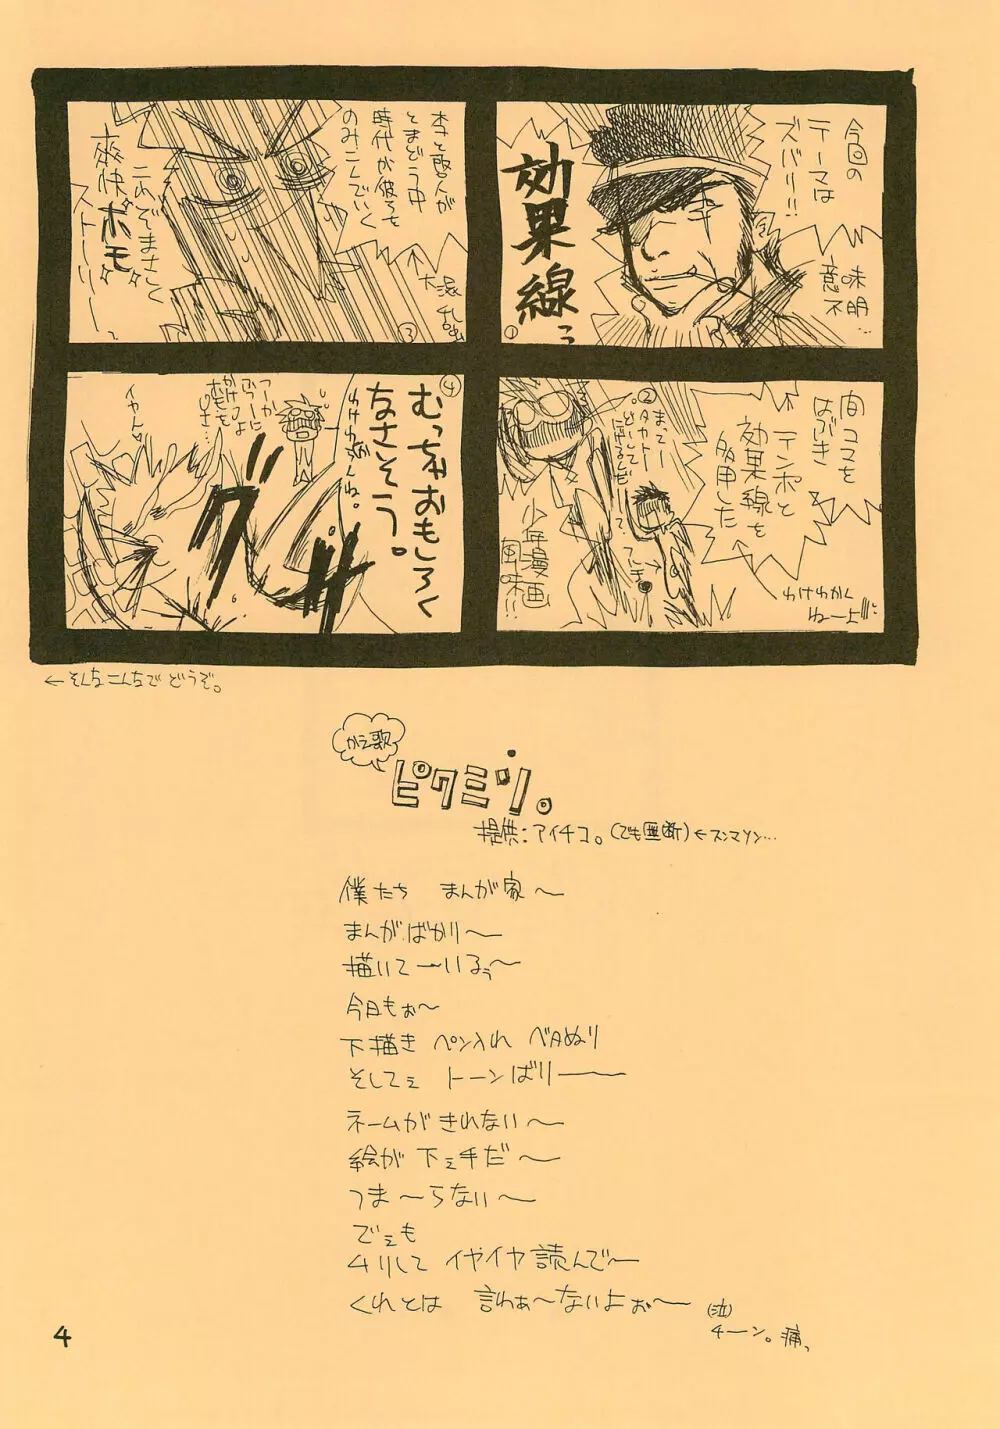 今回の
テーマは
ズバリ!!
効果線っ
意味
不明…
①
間コマを
はぶき
テンポと
効果線を
多用した
②
まってー
タカトー
どーして
にげるんだ
少年漫画
風味!!
わけわかく
ねーよ!!!
時代が彼らを
のみこんでいく
とまどう中
③
これぞまさしく
爽快ホモ
ストーリーっ
④
むっちゃおもしろく
なさそう。
わけわかんね。
グサ
イヤん
←そんなこんなでどうぞ。
かえ歌
ピクミン。
提供:アイチコ。(でも無断)←スンマソン…
僕たち まんが家〜
まんがばかり〜
描いて〜いるぅ〜
今日もぉ〜
下描き ペン入れ ベタぬり
そしてぇ トーンばりーー
ネームがきれない〜
絵が 下ぇ手だ〜
つま〜らない〜
でぇも
ムリして イヤイヤ読んで〜
くれとは 言わぁ〜ないよぉ〜
(泣)
チーン。痛っ
4